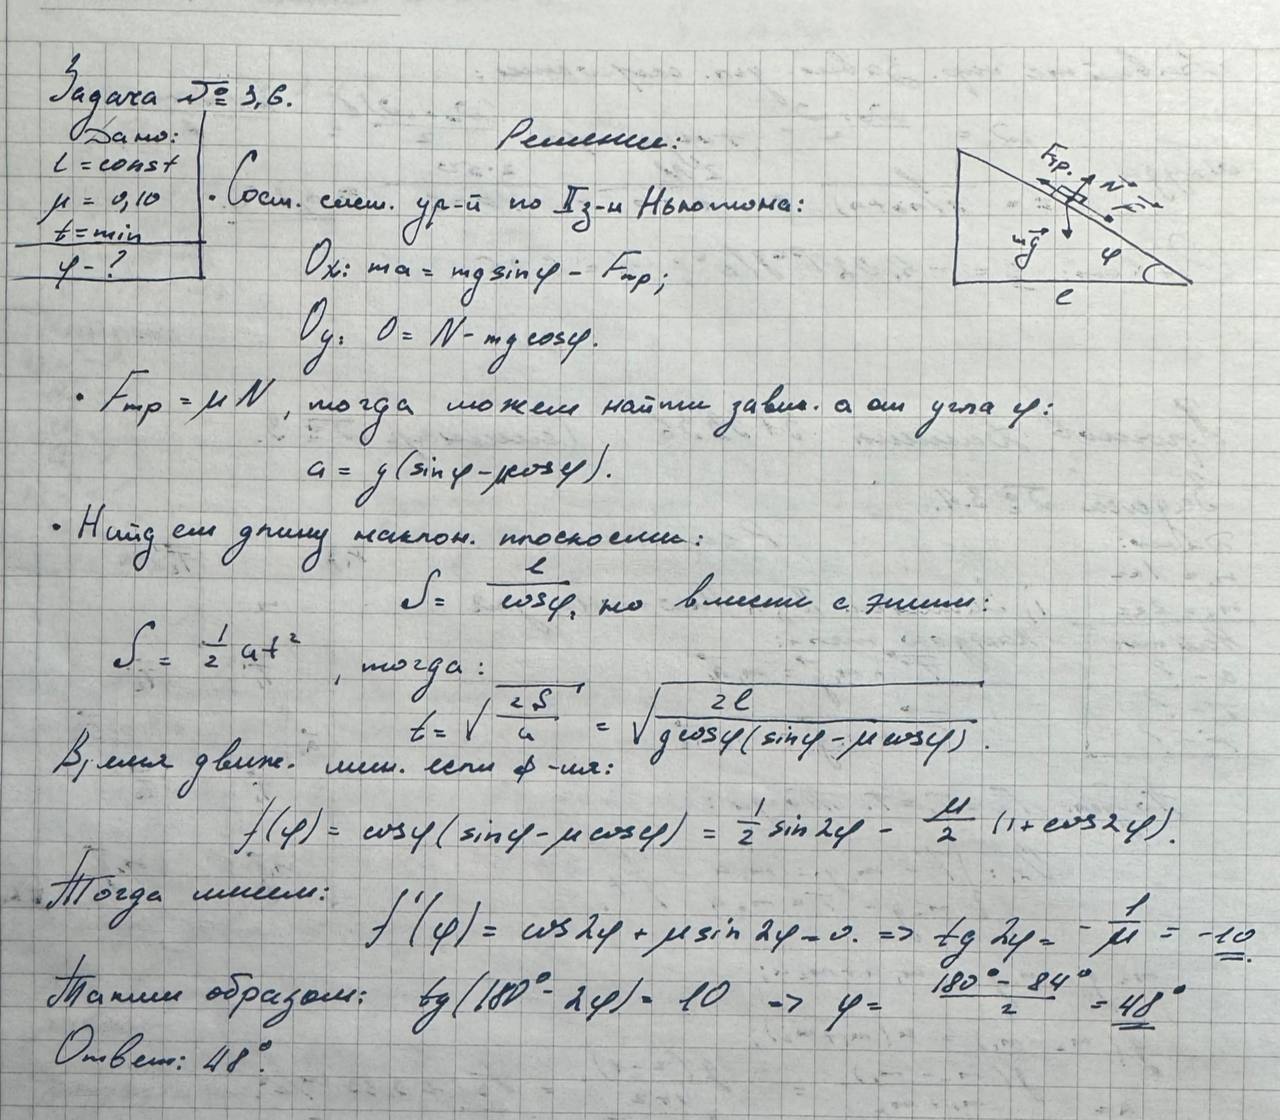 Задача № 3,6.
Дано:
l = const
μ = 0,10
t = min
φ - ?
Решение:
• Сост. сист. ур-й по II з-н Ньютона:
Fтр.
N
F
mg
φ
l
Ox: ma = mg sinφ - Fтр;
Oy: 0 = N - mg cosφ.
• Fтр = μN, тогда можем найти завис. a от угла φ:
a = g(sinφ - μcosφ).
• Найдем длину наклон. плоскости:
S = l/cosφ, но вместе с этим:
S = 1/2 at², тогда:
t = √(2S/a) = √(2l/(g cosφ(sinφ - μcosφ))).
Время движ. мин. если ф-ия:
f(φ) = cosφ(sinφ - μcosφ) = 1/2 sin2φ - μ/2 (1 + cos2φ).
Тогда имеем:
f'(φ) = cos2φ + μsin2φ = 0. => tg 2φ = - 1/μ = -10.
Таким образом: tg(180° - 2φ) = 10 => φ = (180° - 84°)/2 = 48°
Ответ: 48°.